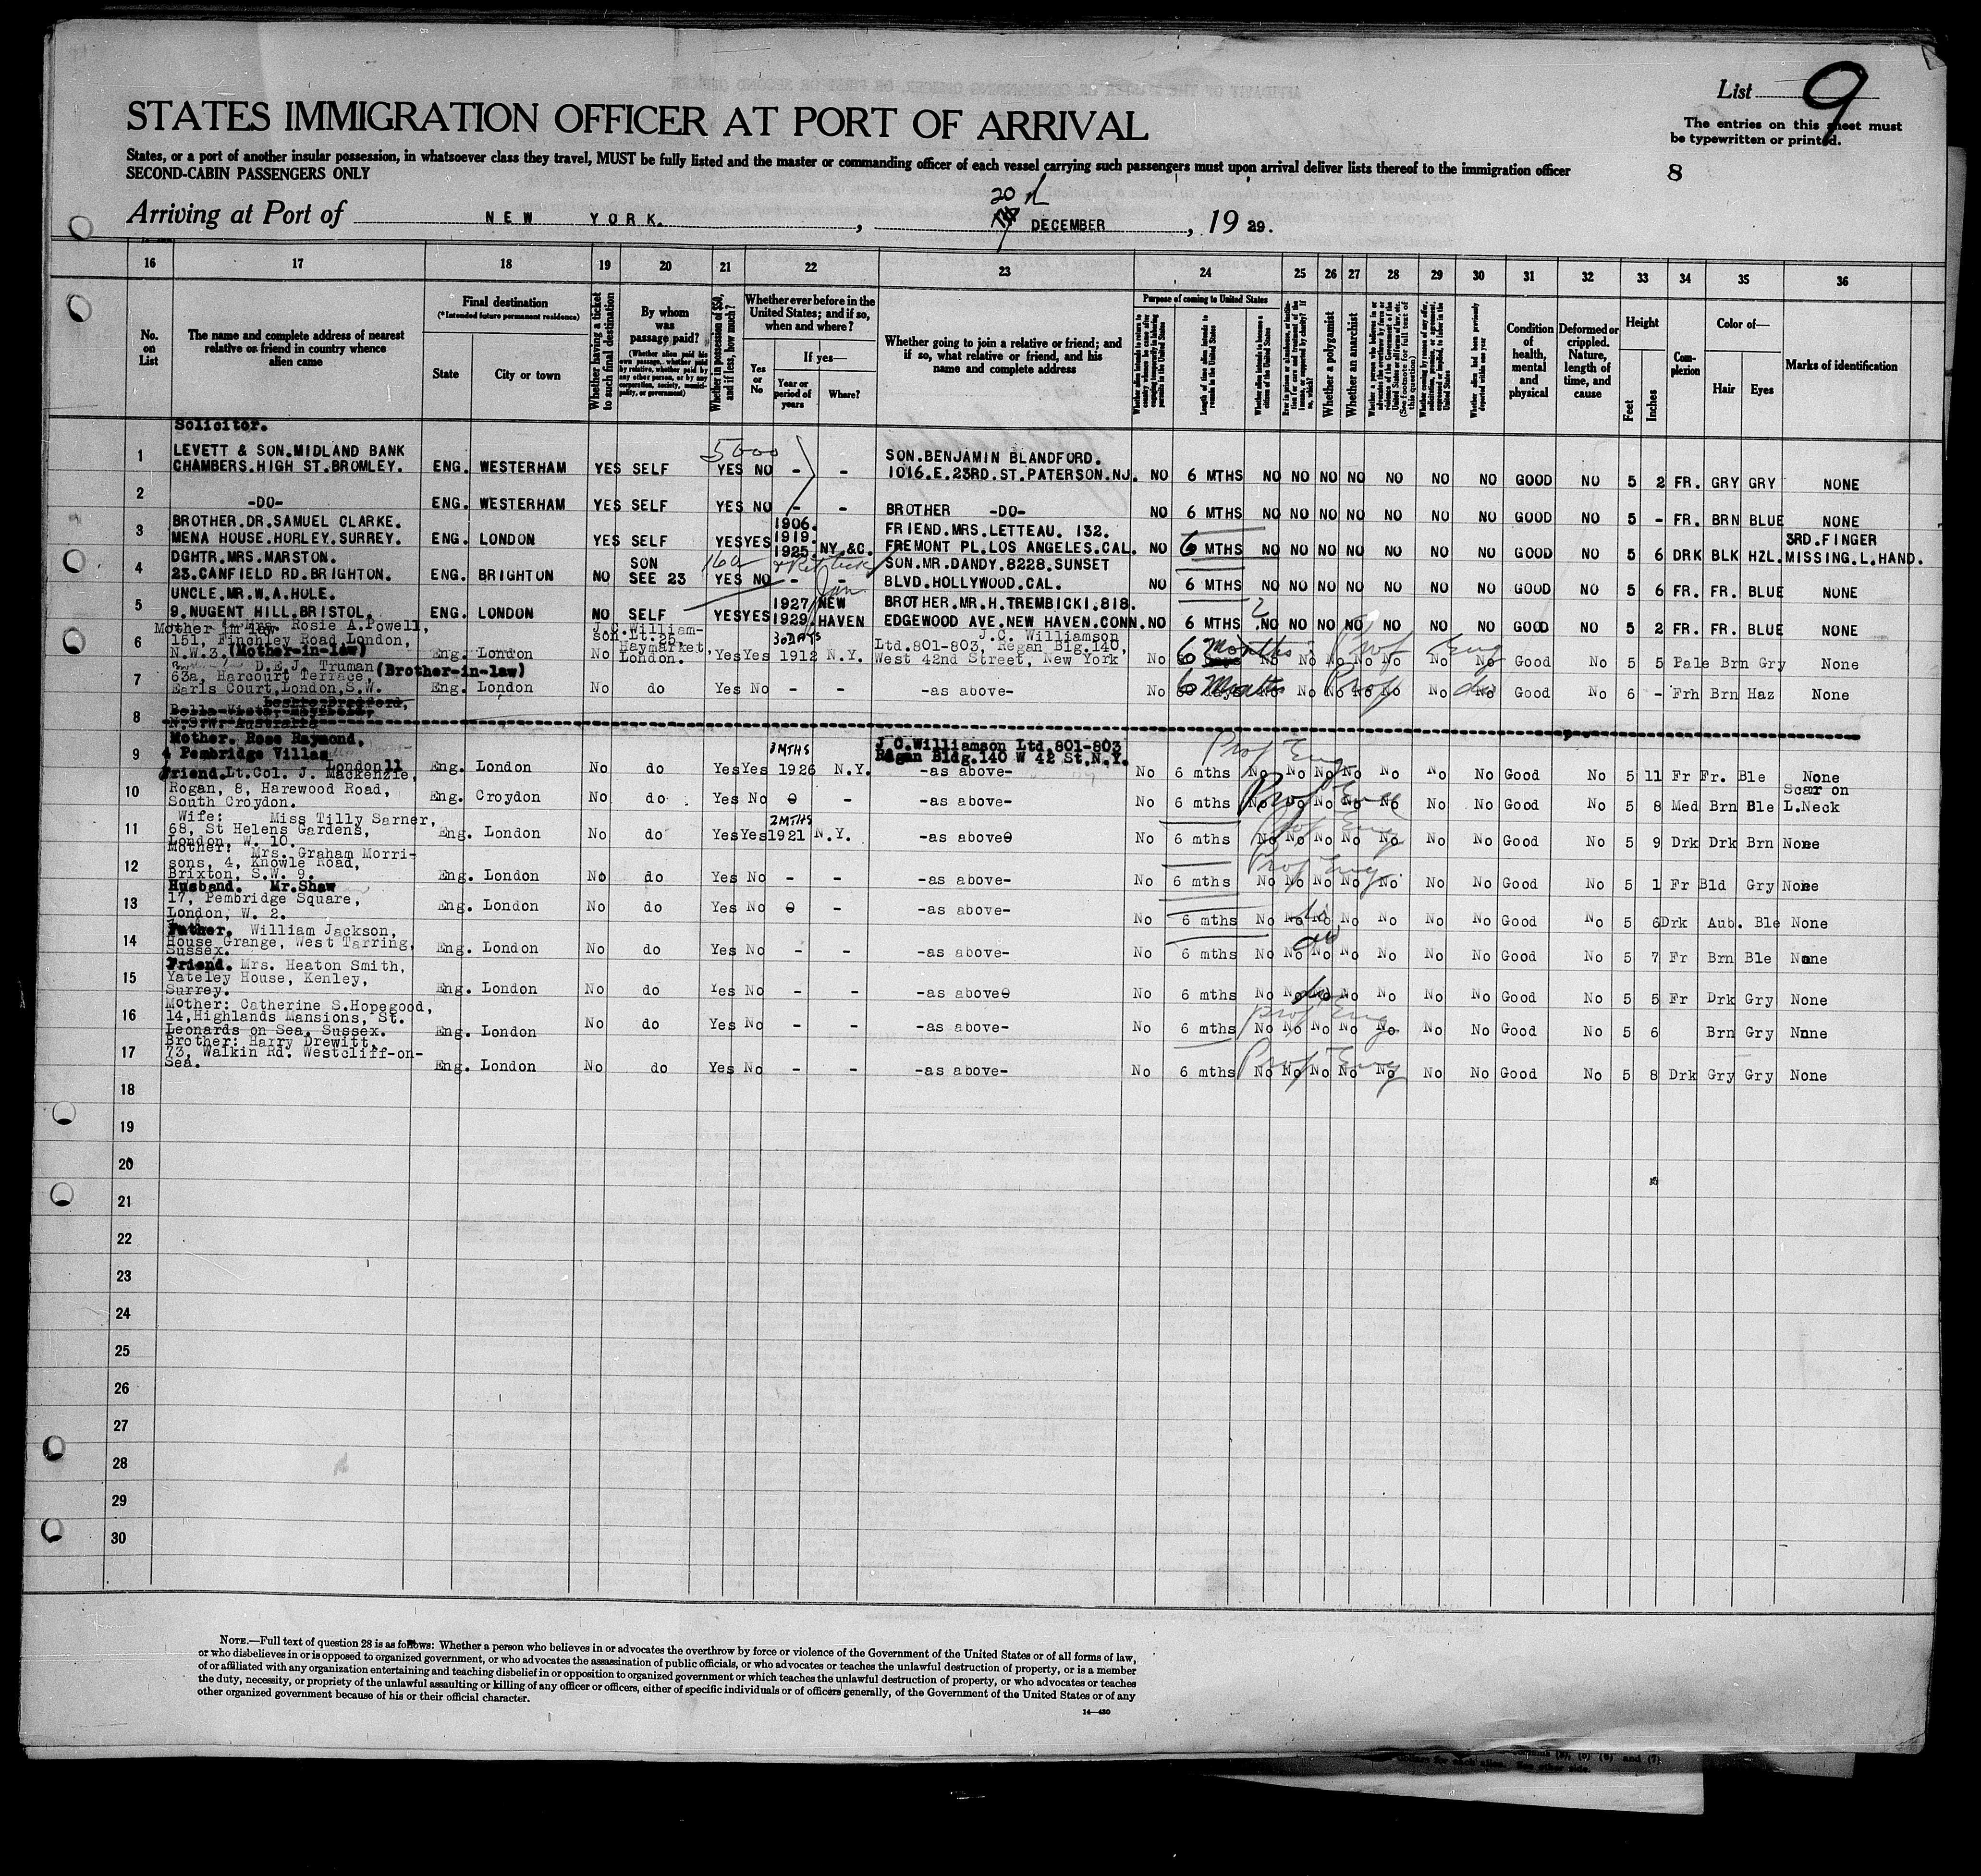 List 9
The entries on this sheet must
be typewritten or printed.
STATES IMMIGRATION OFFICER AT PORT OF ARRIVAL
States, or a port of another insular possession, in whatsoever class they travel, MUST be fully listed and the master or commanding officer of each vessel carrying such passengers must upon arrival deliver lists thereof to the immigration officer
SECOND-CABIN PASSENGERS ONLY
8
20th
Arriving at Port of NEW YORK. , DECEMBER , 19 29.
16 17 18 19 20 21 22 23 24 25 26 27 28 29 30 31 32 33 34 35 36
No. on List
The name and complete address of nearest relative or friend in country whence alien came
Final destination
(*Intended future permanent residence)
State
City or town
Whether having a ticket to such final destination
By whom was passage paid?
(Whether alien paid his own passage, whether paid by relative, whether paid by any other person, or by any corporation, society, municipality, or government)
Whether in possession of $50, and if less, how much?
Whether ever before in the United States; and if so, when and where?
Yes or No
If yes—
Year or period of years
Where?
Whether going to join a relative or friend; and if so, what relative or friend, and his name and complete address
Purpose of coming to United States
Length of time alien intends to remain in the United States
Whether alien intends to become a citizen of the United States
Whether a polygamist
Whether an anarchist
Whether alien had been previously deported within one year
Condition of health, mental and physical
Deformed or crippled. Nature, length of time, and cause
Height
Feet
Inches
Complexion
Color of—
Hair
Eyes
Marks of identification
Solicitor.
5000
1 LEVETT & SON.MIDLAND BANK
CHAMBERS.HIGH ST.BROMLEY. ENG. WESTERHAM YES SELF YES NO - - SON.BENJAMIN BLANDFORD.
1016.E.23RD.ST.PATERSON.NJ. NO 6 MTHS NO NO NO NO NO NO NO GOOD NO 5 2 FR. GRY GRY NONE
2 -DO- ENG. WESTERHAM YES SELF YES NO - - BROTHER -DO- NO 6 MTHS NO NO NO NO NO NO NO GOOD NO 5 - FR. BRN BLUE NONE
3 BROTHER.DR.SAMUEL CLARKE.
MENA HOUSE.HORLEY.SURREY. ENG. LONDON YES SELF YES YES 1906. 1919. 1925. NY.&C. FRIEND.MRS.LETTEAU. 132.
FREMONT PL.LOS ANGELES.CAL. NO 6 MTHS NO NO NO NO NO NO NO GOOD NO 5 6 DRK BLK HZL. 3RD.FINGER
MISSING.L.HAND.
4 DGHTR.MRS.MARSTON.
23.CANFIELD RD.BRIGHTON. ENG. BRIGHTON NO SON SEE 23 160 YES NO - - SON.MR.DANDY.8228.SUNSET
BLVD.HOLLYWOOD.CAL. NO 6 MTHS NO NO NO NO NO NO NO GOOD NO 5 6 FR. FR. BLUE NONE
5 UNCLE.MR.W.A.HOLE.
9.NUGENT HILL.BRISTOL. ENG. LONDON NO SELF YES YES 1927/ 1929 NEW HAVEN BROTHER.MR.H.TREMBICKI.818.
EDGEWOOD AVE.NEW HAVEN.CONN. NO 6 MTHS NO NO NO NO NO NO NO GOOD NO 5 2 FR. FR. BLUE NONE
6 Mother in law Mrs. Rosie A.Powell,
151, Finchley Road,London,
N.W.3.(Mother-in-law) Eng. London No J.C.Williamson Ld.25 Haymarket, London. Yes Yes 30DAYS 1912 N.Y. J.C. Williamson
Ltd.801-803, Regan Blg.140,
West 42nd Street, New York No 6 Months No No No No No No No Good No 5 5 Pale Brn Gry None
Prof Eng
7 D.E.J. Truman
63a, Harcourt Terrace,(Brother-in-law)
Earls Court,London,S.W. Eng. London No do Yes No - - -as above- No 6 Months No No No No No No No Good No 6 - Frh Brn Haz None
Prof do
8 Leslie Bradford,
N.S.W. Australia
9 Mother. Rose Raymond,
4 Pembridge Villas
London 11 Eng. London No do Yes Yes 3MTHS 1926 N.Y. J.C.Williamson Ltd.801-803
Regan Bldg.140 W 42 St.N.Y.
-as above- No 6 mths No No No No No No No Good No 5 11 Fr Fr. Ble None
Prof Eng
10 Friend.Lt.Col. J. Mackenzie,
Rogan, 8, Harewood Road,
South Croydon. Eng. Croydon No do Yes No - - -as above- No 6 mths No No No No No No No Good No 5 8 Med Brn Ble Scar on
L.Neck
Prof Eng
11 Wife: Miss Tilly Sarner,
68, St Helens Gardens,
London, W. 10. Eng. London No do Yes Yes 2MTHS 1921 N.Y. -as above- No 6 mths No No No No No No No Good No 5 9 Drk Drk Brn None
Prof Eng
12 Mother: Mrs. Graham Morri-
sons, 4, Knowle Road,
Brixton, S.W. 9. Eng. London No do Yes No - - -as above- No 6 mths No No No No No No No Good No 5 1 Fr Bld Gry None
Prof Eng
13 Husband. Mr.Shaw
17, Pembridge Square,
London, W. 2. Eng. London No do Yes No - - -as above- No 6 mths No No No No No No No Good No 5 6 Drk Aub. Ble None
do
14 Father. William Jackson,
House Grange, West Tarring,
Sussex. Eng. London No do Yes No - - -as above- No 6 mths No No No No No No No Good No 5 7 Fr Brn Ble None
do
15 Friend. Mrs. Heaton Smith,
Yateley House, Kenley,
Surrey. Eng. London No do Yes No - - -as above- No 6 mths No No No No No No No Good No 5 5 Fr Drk Gry None
do
16 Mother: Catherine S.Hopegood,
14,Highlands Mansions, St.
Leonards on Sea. Sussex. Eng. London No do Yes No - - -as above- No 6 mths No No No No No No No Good No 5 6 Brn Gry None
Prof Eng
17 Brother: Harry Drewitt,
73, Walkin Rd. Westcliff-on-
Sea. Eng. London No do Yes No - - -as above- No 6 mths No No No No No No No Good No 5 8 Drk Gry Gry None
Prof Eng
18
19
20
21
22
23
24
25
26
27
28
29
30
NOTE.—Full text of question 28 is as follows: Whether a person who believes in or advocates the overthrow by force or violence of the Government of the United States or of all forms of law,
or who disbelieves in or is opposed to organized government, or who advocates the assassination of public officials, or who advocates or teaches the unlawful destruction of property, or is a member
of or affiliated with any organization entertaining and teaching disbelief in or opposition to organized government or which teaches the unlawful destruction of property, or who advocates or teaches
the duty, necessity, or propriety of the unlawful assaulting or killing of any officer or officers, either of specific individuals or of officers generally, of the Government of the United States or of any
other organized government because of his or their official character.
14—430
dollars for each alien. See other side.